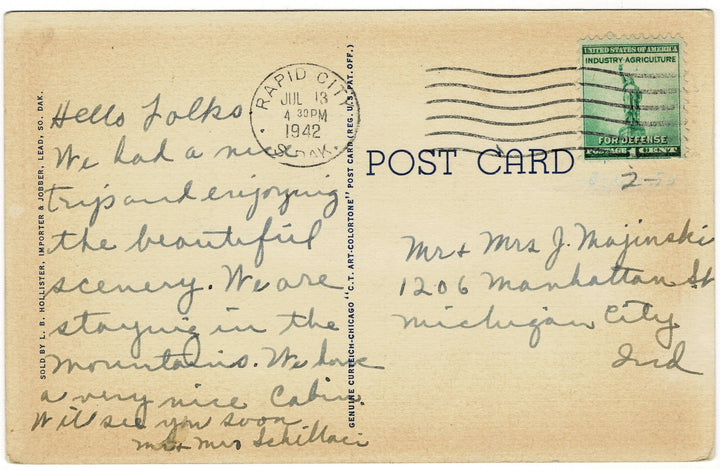 SOLD BY L. B. HOLLISTER, IMPORTER & JOBBER, LEAD, SO. DAK.
Hello Folks
We had a nice
trip and enjoying
the beautiful
scenery. We are
staying in the
mountains. We have
a very nice Cabin.
Will see you soon
Mr & Mrs Schillaci
RAPID CITY
JUL 13
4 30 PM
1942
S. DAK.
GENUINE CURTEICH-CHICAGO "C. T. ART-COLORTONE" POST CARD (REG. U. S. PAT. OFF.)
POST CARD
UNITED STATES OF AMERICA
INDUSTRY·AGRICULTURE
FOR DEFENSE
POSTAGE 1 CENT
2-
Mr & Mrs J. Majinski
1206 Manhattan St
Michigan City
Ind